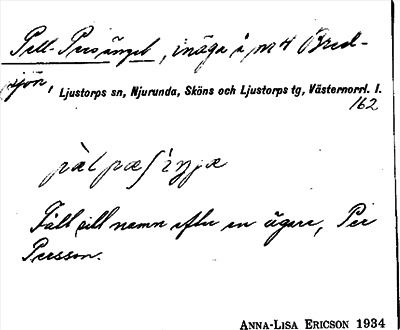 Pell-Persänget, inäga å nr 4 Bred-
sjön, Ljustorps sn, Njurunda, Sköns och Ljustorps tg, Västernorrl. l.
162
Fått sitt namn efter en ägare, Per
Persson.
ANNA-LISA ERICSON 1934